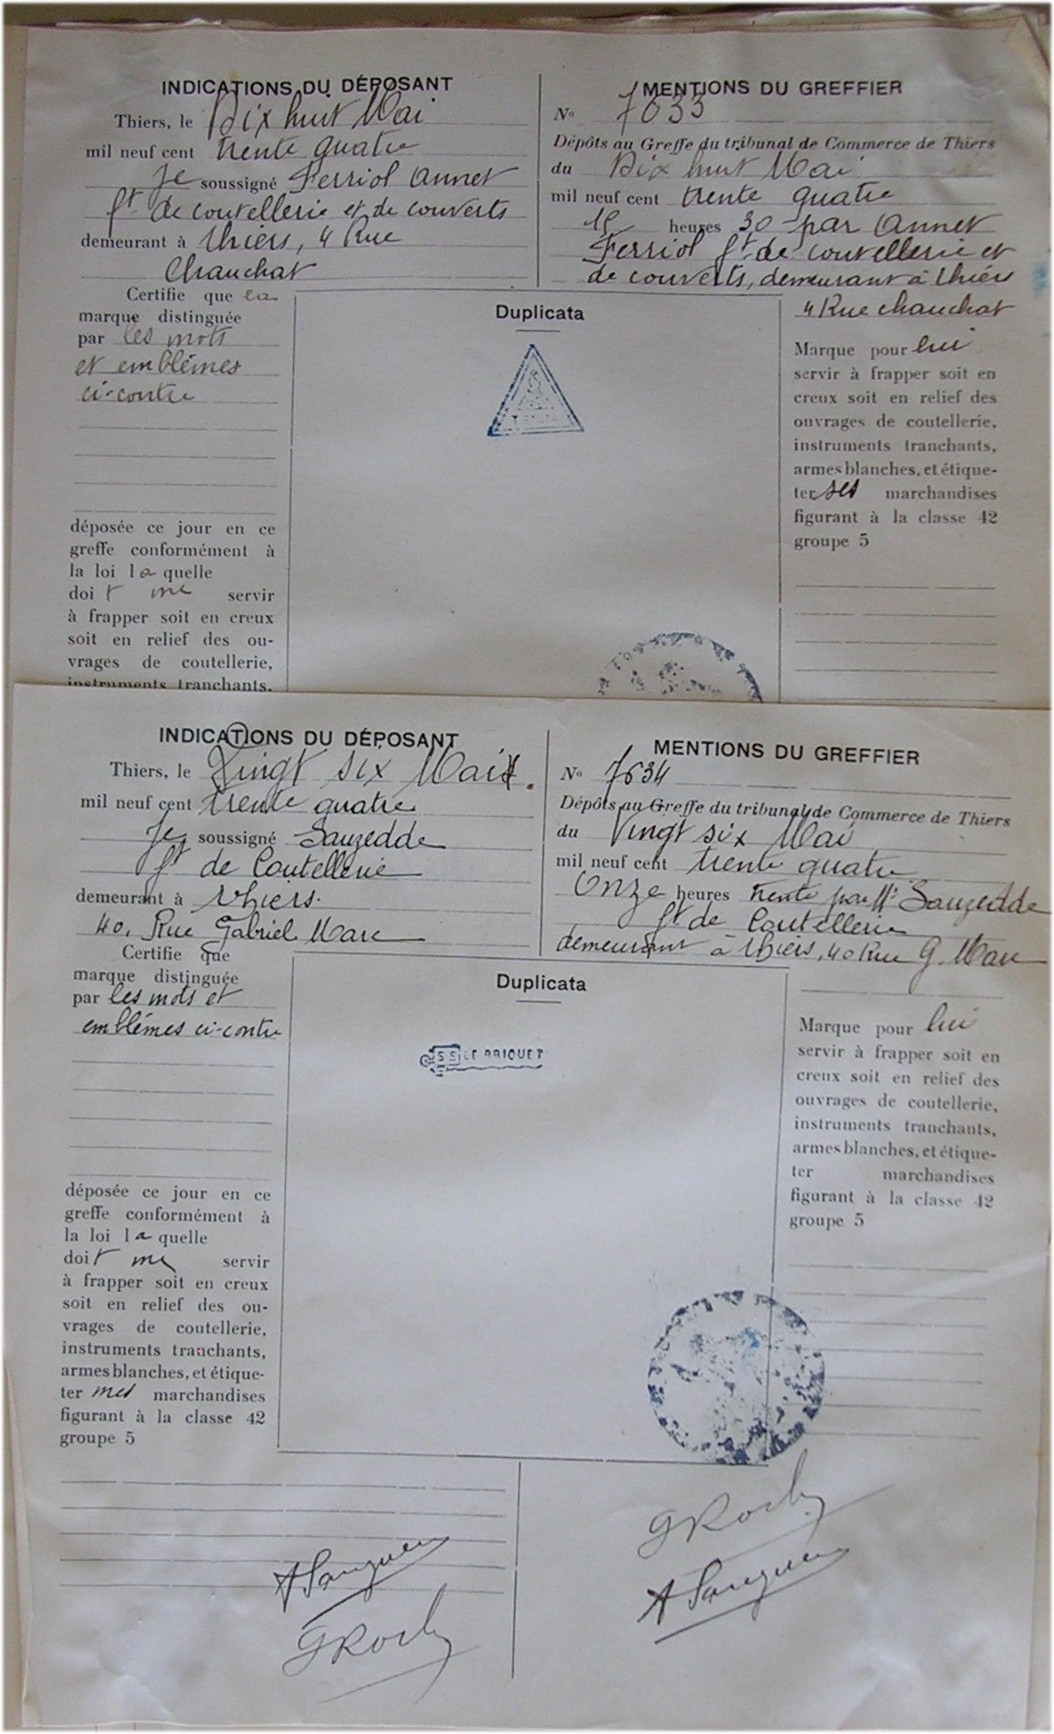 INDICATIONS DU DÉPOSANT
Thiers, le Dix huit Mai
mil neuf cent trente quatre
Je soussigné Ferriol Annet
ft de coutellerie et de couverts
demeurant à Thiers, 4 Rue
Chauchat
Certifie que la
marque distinguée
par les mots
et emblêmes
ci-contre
déposée ce jour en ce
greffe conformément à
la loi la quelle
doit me servir
à frapper soit en creux
soit en relief des ou-
vrages de coutellerie,
instruments tranchants,
Duplicata
MENTIONS DU GREFFIER
No 7633
Dépôts au Greffe du tribunal de Commerce de Thiers
du Dix huit Mai
mil neuf cent trente quatre
heures 30 par Annet
Ferriol ft de coutellerie et
de couverts, demeurant à Thiers
4 Rue Chauchat
Marque pour lui
servir à frapper soit en
creux soit en relief des
ouvrages de coutellerie,
instruments tranchants,
armes blanches, et étique-
ter ses marchandises
figurant à la classe 42
groupe 5
INDICATIONS DU DÉPOSANT
Thiers, le Vingt six Mai
mil neuf cent trente quatre
Je soussigné Sauzedde
ft de Coutellerie
demeurant à Thiers.
40, Rue Gabriel Marc
Certifie que
marque distinguée
par les mots et
emblêmes ci-contre
déposée ce jour en ce
greffe conformément à
la loi la quelle
doit me servir
à frapper soit en creux
soit en relief des ou-
vrages de coutellerie,
instruments tranchants,
armes blanches, et étique-
ter mes marchandises
figurant à la classe 42
groupe 5
Duplicata
SS LE BRIQUET
MENTIONS DU GREFFIER
No 7634
Dépôts au Greffe du tribunal de Commerce de Thiers
du Vingt six Mai
mil neuf cent trente quatre
Onze heures trente par Mr Sauzedde
ft de Coutellerie
demeurant à Thiers, 40 Rue G. Marc
Marque pour lui
servir à frapper soit en
creux soit en relief des
ouvrages de coutellerie,
instruments tranchants,
armes blanches, et étique-
ter marchandises
figurant à la classe 42
groupe 5